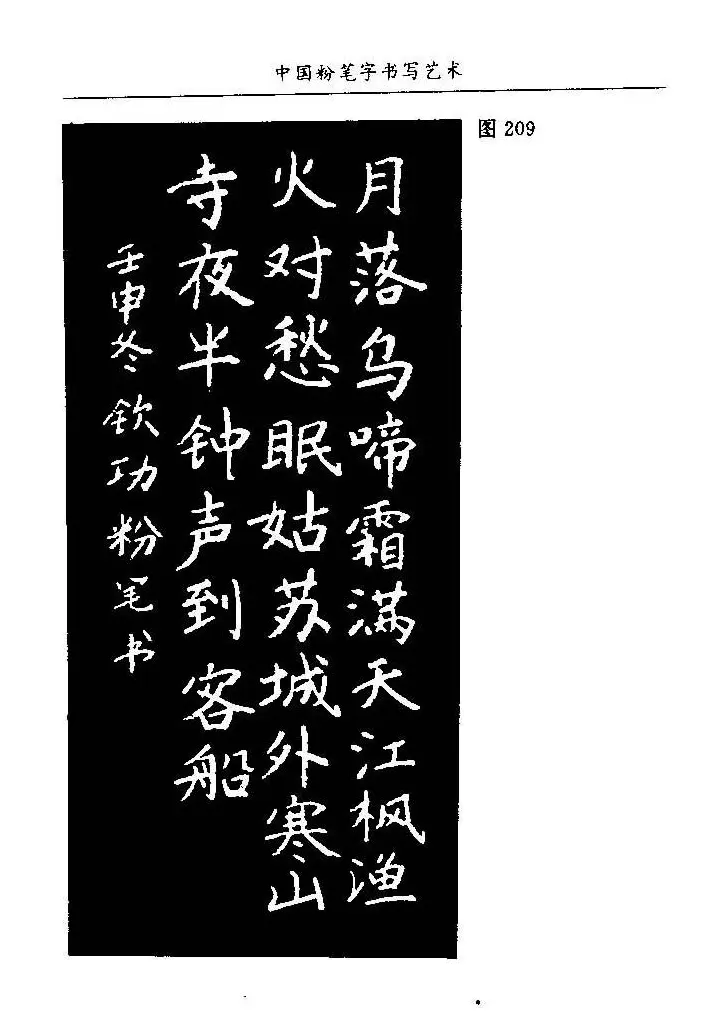 中国粉笔字书写艺术
图 209
月落乌啼霜满天江枫渔
火对愁眠姑苏城外寒山
寺夜半钟声到客船
壬申冬钦功粉笔书